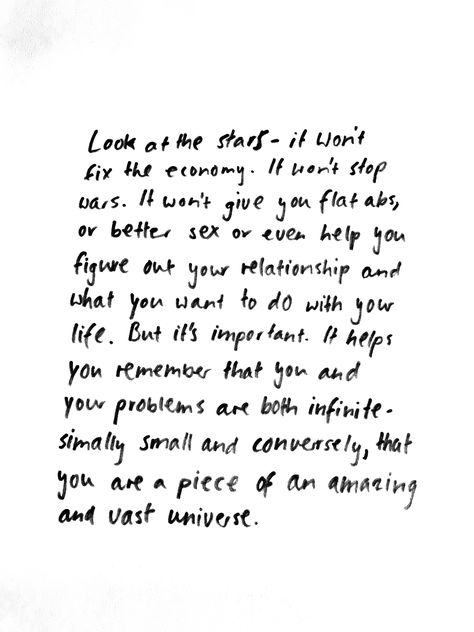 Look at the stars - it won't
fix the economy. It won't stop
wars. It won't give you flat abs,
or better sex or even help you
figure out your relationship and
what you want to do with your
life. But it's important. It helps
you remember that you and
your problems are both infinite-
simally small and conversely, that
you are a piece of an amazing
and vast universe.